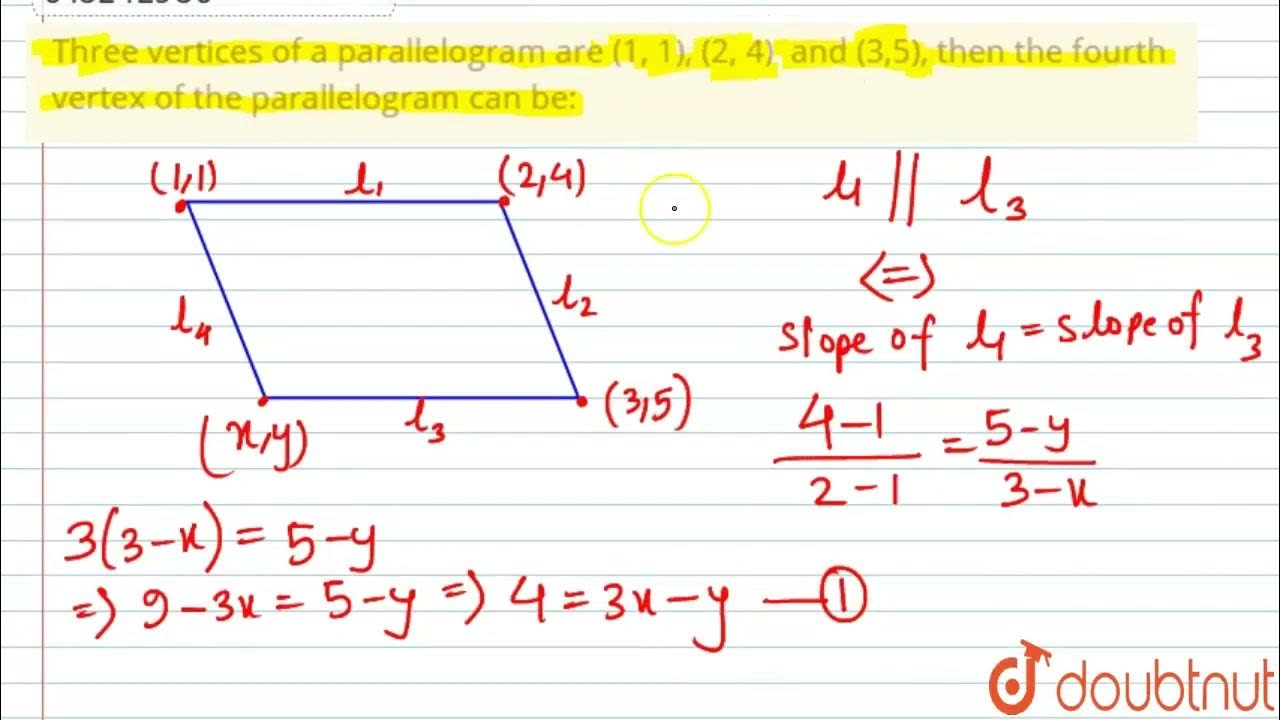 Three vertices of a parallelogram are (1, 1), (2, 4) and (3,5), then the fourth
vertex of the parallelogram can be:
(1,1) l₁ (2,4)
l₁ || l₃
l₄ l₂
<=>
slope of l₁ = slope of l₃
(x,y) l₃ (3,5)
4-1 / 2-1 = 5-y / 3-x
3(3-x) = 5-y
=> 9-3x = 5-y => 4 = 3x-y —①
doubtnut